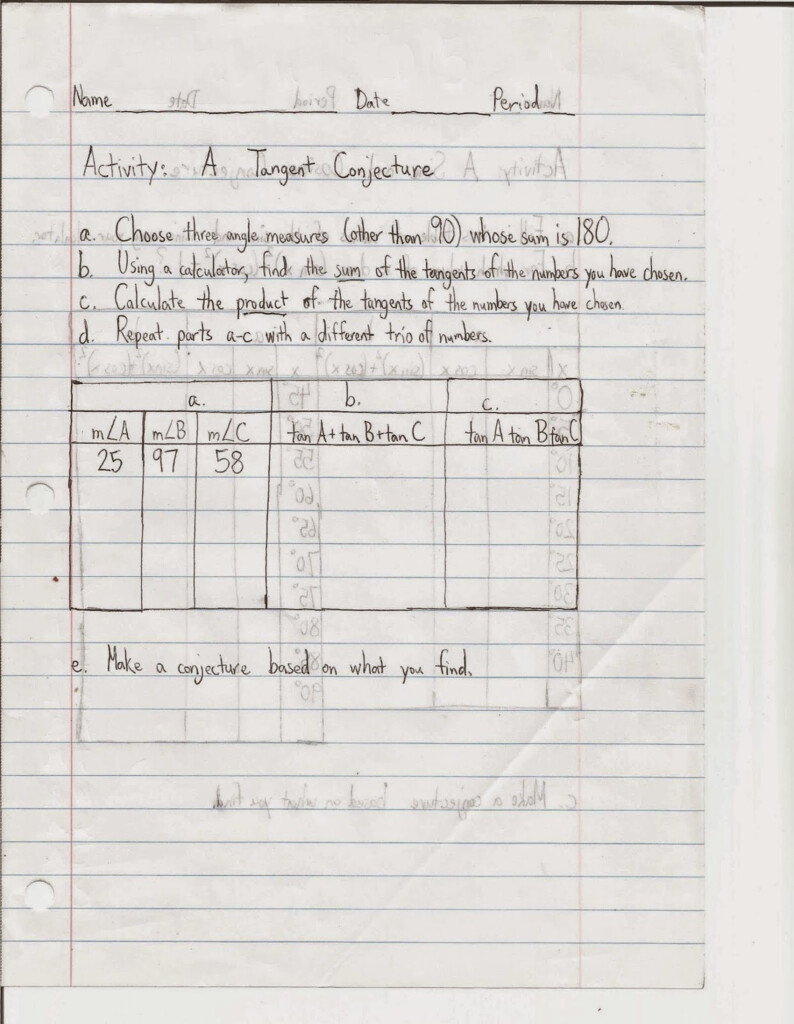 Name Date Period
Activity: A Tangent Conjecture
a. Choose three angle measures (other than 90) whose sum is 180.
b. Using a calculator, find the sum of the tangents of the numbers you have chosen.
c. Calculate the product of the tangents of the numbers you have chosen.
d. Repeat parts a-c with a different trio of numbers.
a. b. c.
m∠A m∠B m∠C tan A + tan B + tan C tan A tan B tan C
25 97 58
e. Make a conjecture based on what you find.